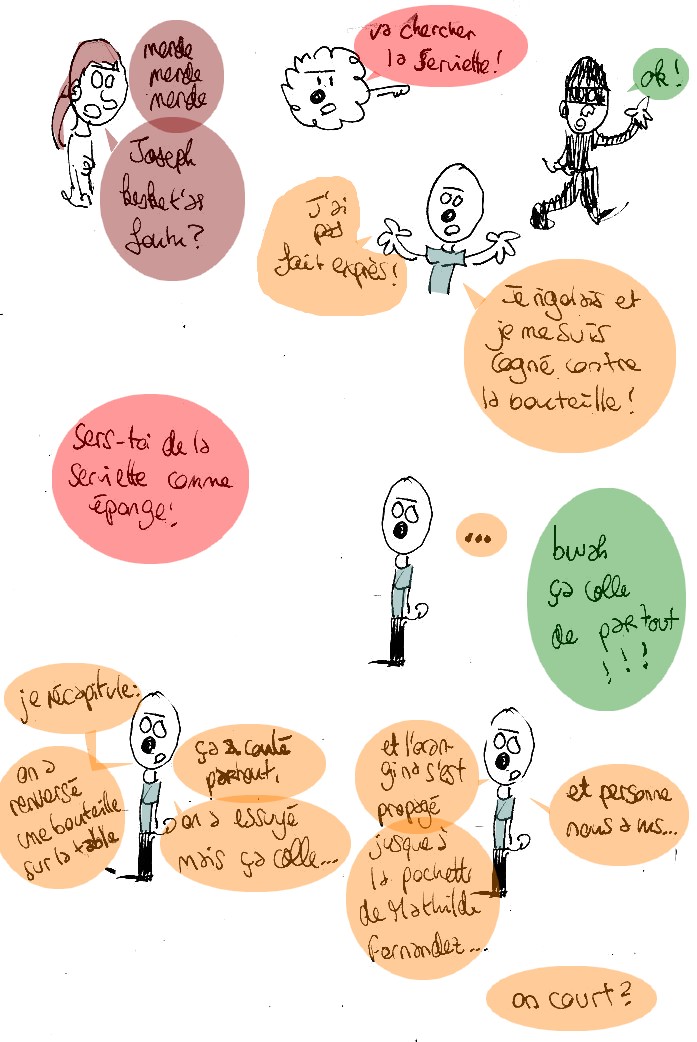 merde
merde
merde
Joseph
keske t'as
foutu?
va chercher
la serviette!
ok!
J'ai
pas
fait exprès!
Je rigolais et
je me suis
cogné contre
la bouteille!
Sers-toi de la
serviette comme
éponge!
...
bwah
ça colle
de partout
!!!
je récapitule:
on a
renversé
une bouteille
sur la table
ça a coulé
partout,
on a essuyé
mais ça colle...
et l'oran-
gina s'est
propagé
jusque à
la pochette
de Mathilde
Fernandez...
et personne
nous a vus...
on court?